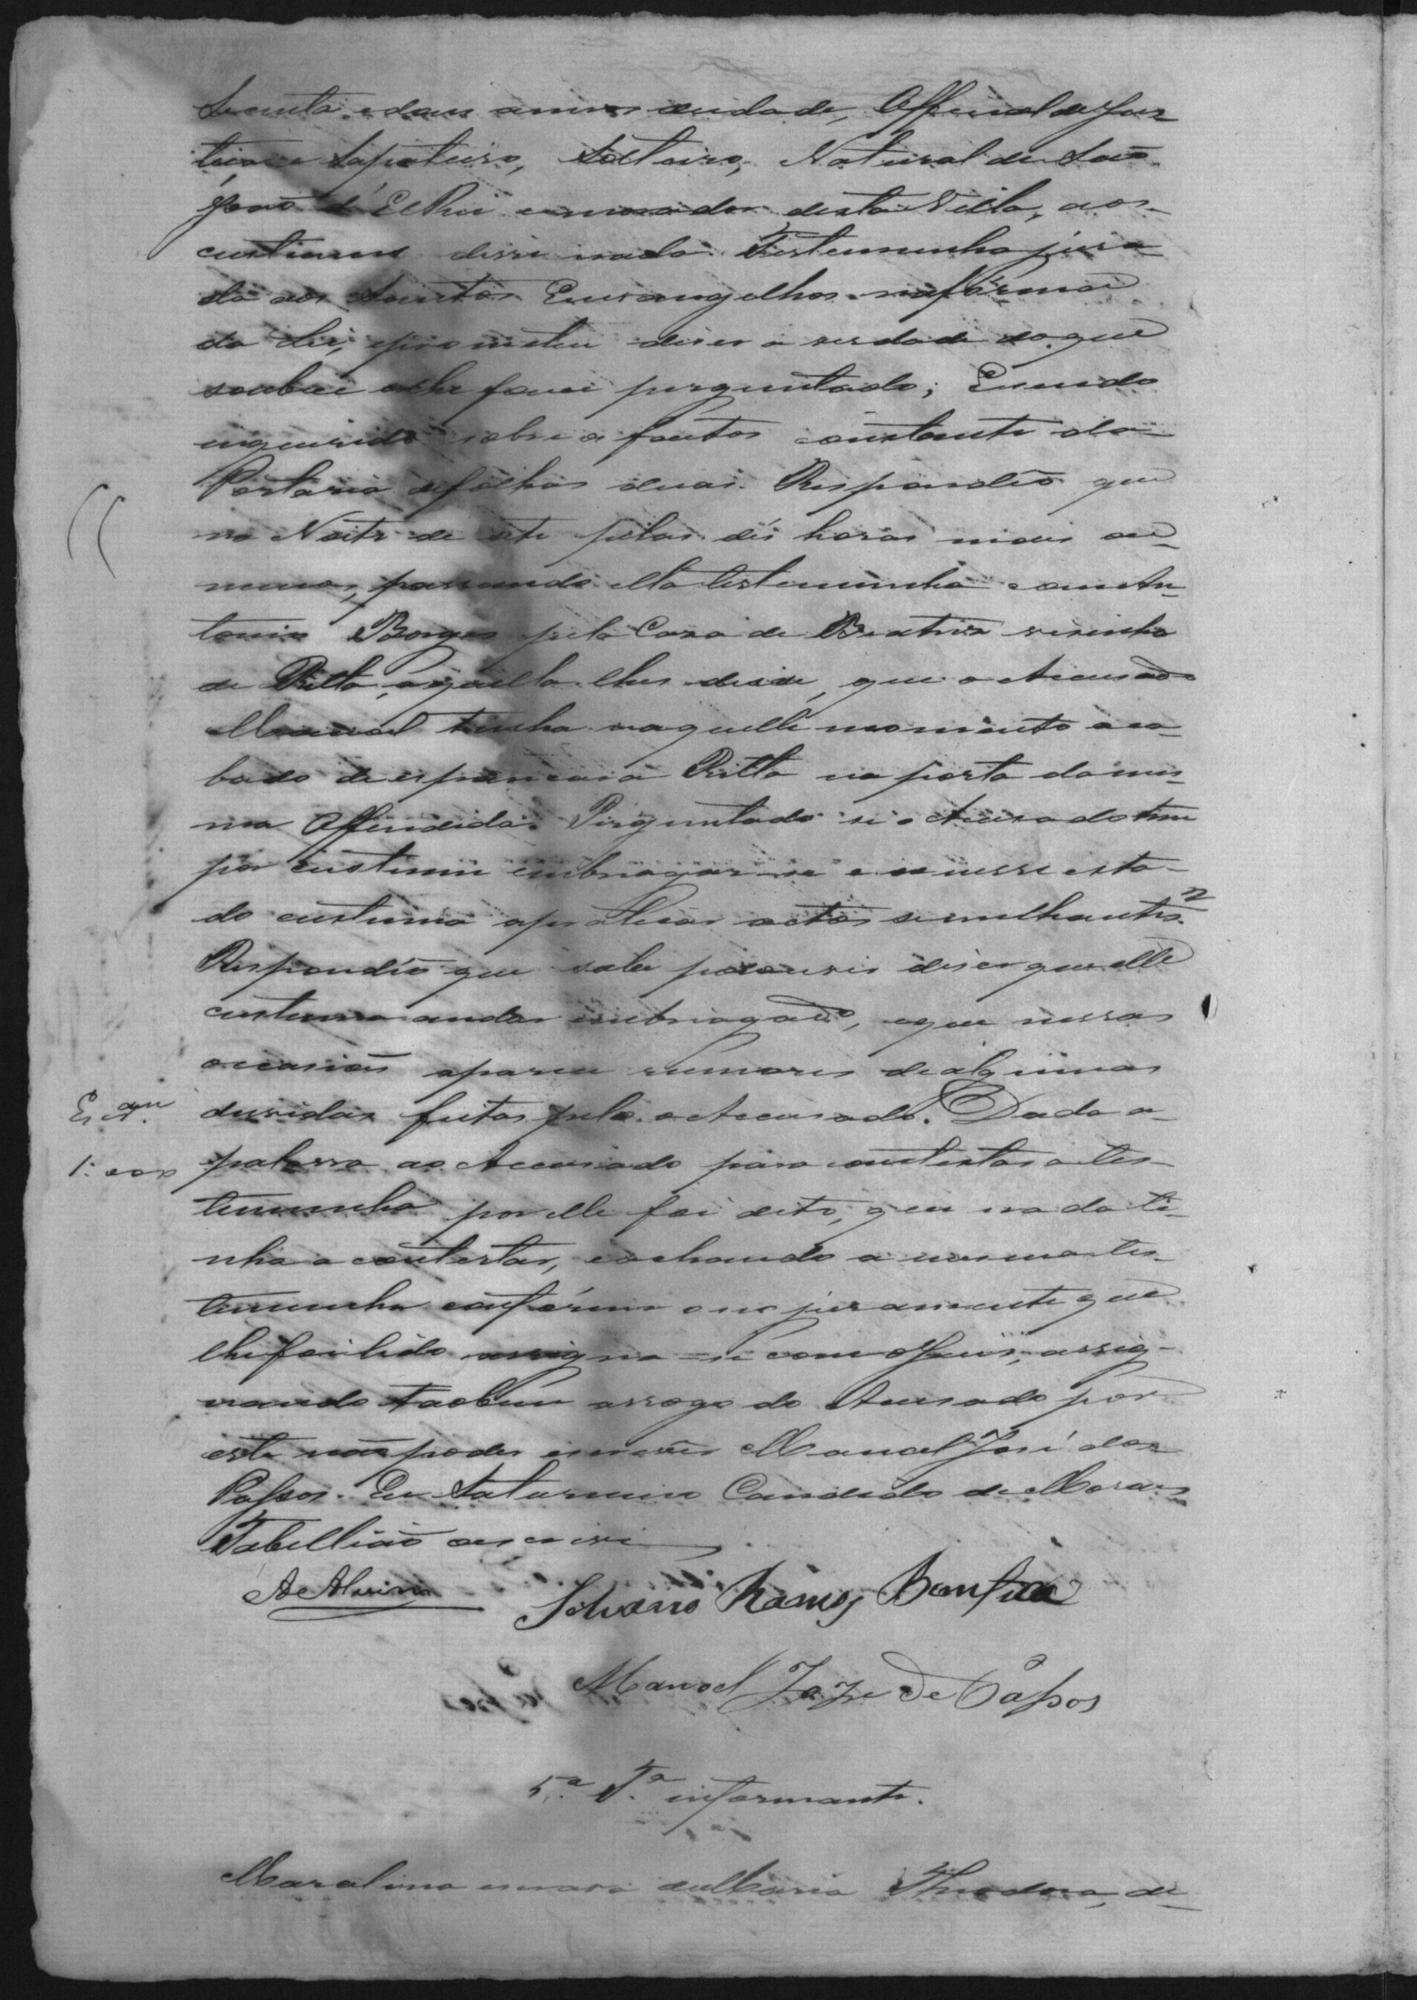 senta e dous annos de idade, Official de Jus
tiça e Sapateiro, Solteiro, Natural de São
João d'ElRei e morador desta Villa, aos
custumes disse nada. Testemunha jura
da aos Santos Evangelhos na fórma
da Lei, prometeu diser a verdade do que
soubece e lhe fosse perguntado; E sendo
inquirido sobre os factos constante da
Portaria de folhas duas. Respondeo que
na Noite de sete pelas dés horas mais ou
menos, passando ella testemunha com An-
tonio Borges pela Casa de Beatris visinha
de Ritta, aquella lhes disse, que o Acusado
Manoel tinha naquelle momento aca-
bado de espancar a Ritta na porta da mes-
ma Offendida. Perguntado se o Acusado tem
por custume embriagar-se e se nesse esta-
do custuma a praticar actos semelhantes?
Respondeo que sabe por ouvir diser que elle
custuma andar embriagado, e que nessas
occasiões aparece rumores de algumas
duvidas feitas pelo o Accusado. Dada a
palavra ao Accusado para contestar a tes-
temunha por elle foi dito, que nada ti-
nha a contestar, e achando a mesma tes-
temunha confórme o seo juramento que
lhe foi lido assigna-se com o Juis, assig-
nando taobem arrogo do Acusado por
este não poder escrever Manoel José dos
Passos. Eu Saturnino Candido de Moraes
Tabellião escrevi
Silvano Ramos
Manoel Joze de Passos
5.ª T.ª informante.
Maralina escrava de Maria Theodora, de